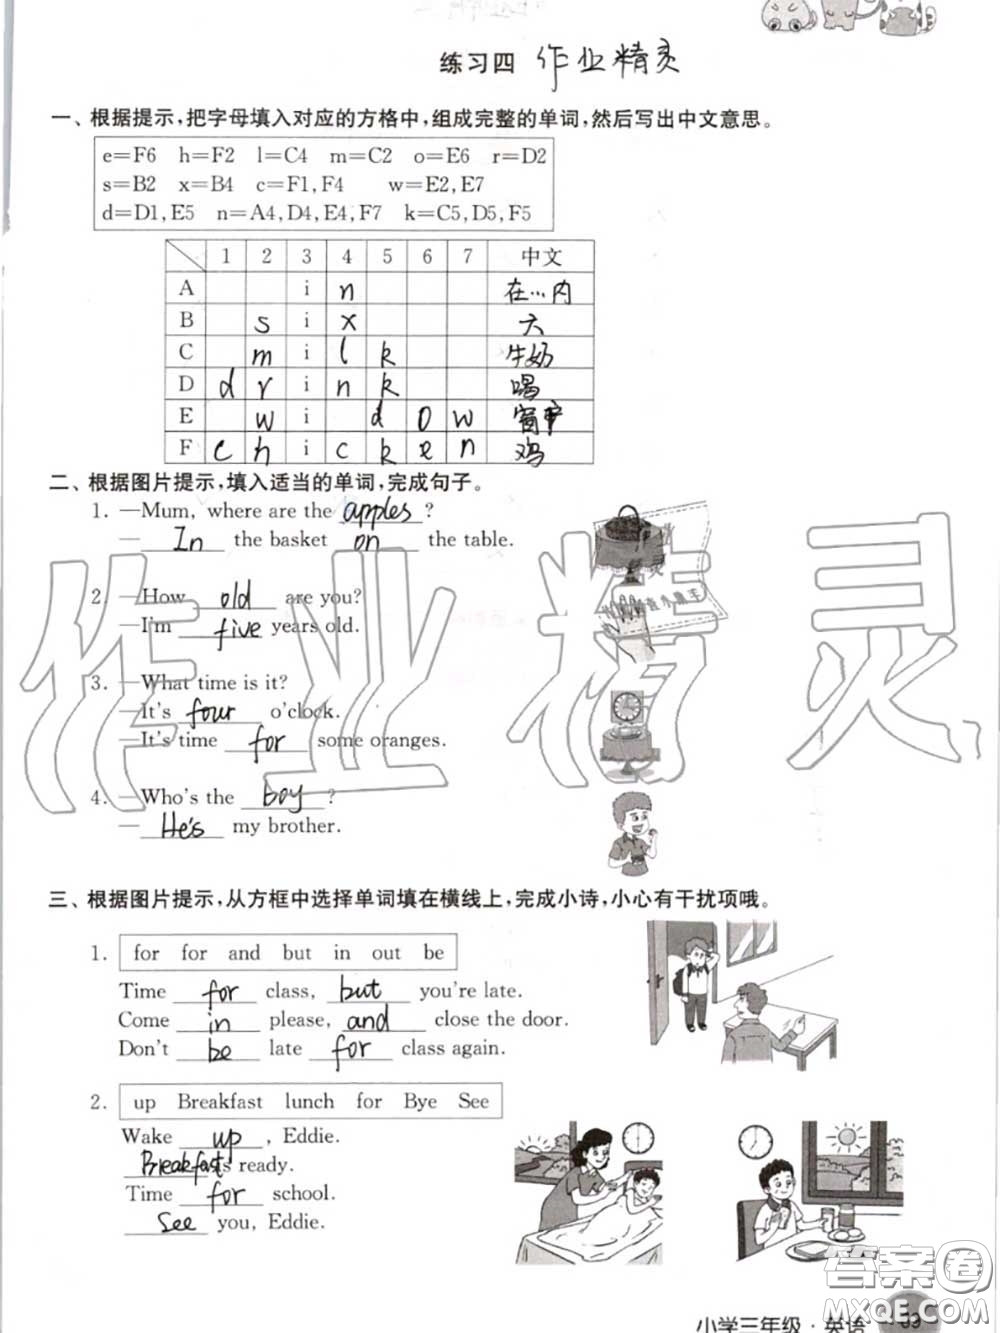 练习四 作业精灵
一、根据提示,把字母填入对应的方格中,组成完整的单词,然后写出中文意思。
e=F6 h=F2 l=C4 m=C2 o=E6 r=D2
s=B2 x=B4 c=F1,F4 w=E2,E7
d=D1,E5 n=A4,D4,E4,F7 k=C5,D5,F5
1 2 3 4 5 6 7 中文
A i n 在…内
B s i x 六
C m i l k 牛奶
D d r i n k 喝
E w i d o w 窗户
F c h i c k e n 鸡
二、根据图片提示,填入适当的单词,完成句子。
1. —Mum, where are the apples ?
— In the basket on the table.
2. —How old are you?
—I'm five years old.
3. —What time is it?
—It's four o'clock.
—It's time for some oranges.
4. —Who's the boy ?
— He's my brother.
三、根据图片提示,从方框中选择单词填在横线上,完成小诗,小心有干扰项哦。
1. for for and but in out be
Time for class, but you're late.
Come in please, and close the door.
Don't be late for class again.
2. up Breakfast lunch for Bye See
Wake up , Eddie.
Breakfast is ready.
Time for school.
See you, Eddie.
作业精灵
答案圈
MXQE.COM
小学三年级·英语 69